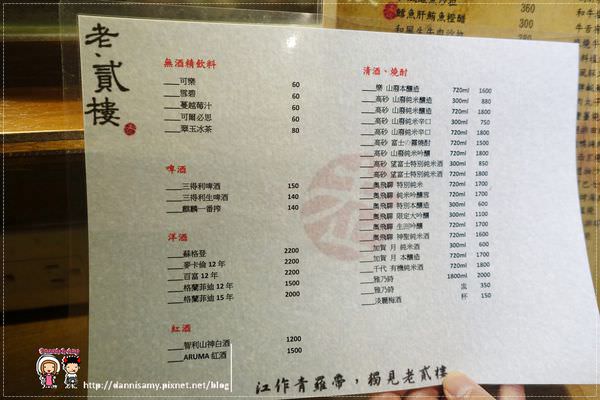 老·貳樓
無酒精飲料
___可樂 60
___雪碧 60
___蔓越莓汁 60
___可爾必思 60
___翠玉冰茶 80
啤酒
___三得利啤酒 150
___三得利生啤酒 140
___麒麟一番搾 140
洋酒
___蘇格登 2200
___麥卡倫 12 年 2200
___百富 12 年 2200
___格蘭菲迪 12 年 1500
___格蘭菲迪 15 年 2000
紅酒
___智利山神白酒 1200
___ARUMA 紅酒 1500
清酒、燒酎
___樂 山廢本釀造 720ml 1600
___高砂 山廢純米釀造 300ml 880
___高砂 山廢純米釀造 720ml 1800
___高砂 山廢純米辛口 300ml 750
___高砂 山廢純米辛口 720ml 1800
___高砂 富士の霧燒酎 720ml 1500
___高砂 山廢純米吟釀 720ml 1800
___高砂 望富士特別純米酒 300ml 850
___高砂 望富士特別純米酒 720ml 1800
___奧飛驒 特別純米 720ml 1700
___奧飛驒 純米吟釀 720ml 1700
___奧飛驒 特別本釀造 300ml 600
___奧飛驒 限定大吟釀 300ml 1100
___奧飛驒 生洄吟釀 720ml 1700
___奧飛驒 神聖純米酒 720ml 1700
___加賀 月 純米酒 300ml 600
___加賀 月 本釀造 720ml 1700
___千代 有機純米酒 720ml 1800
___雅乃詩 1800ml 2000
___雅乃詩 壺 350
___淡麗梅酒 杯 150
江作青羅帶，獨見老貳樓
360
鱈魚肝鮪魚橙醋 300
280
http://dannisamy.pixnet.net/blog